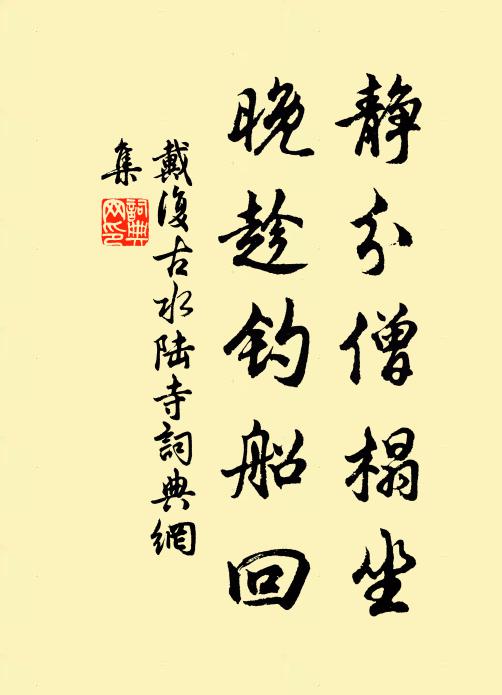 静分僧榻坐
晚趁钓船回
戴復古水陆寺詞典網
集
詞典
网印